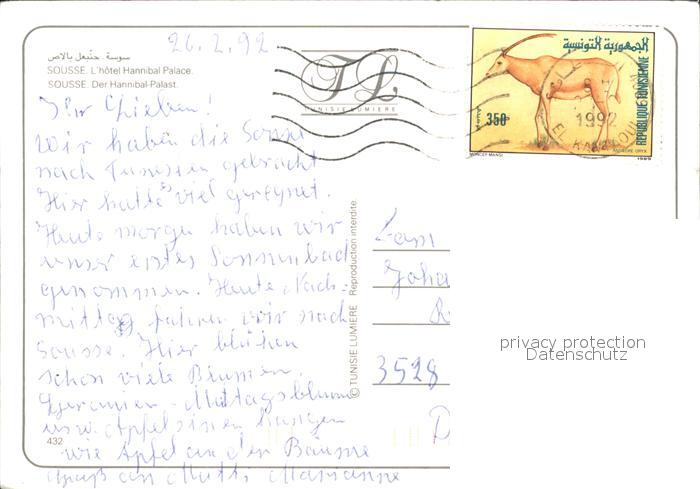 26.2.92
سوسة - حنّبعل بالاص
SOUSSE. L'hôtel Hannibal Palace.
SOUSSE. Der Hannibal-Palast.
TL
TUNISIE LUMIERE
الجمهورية التونسية
REPUBLIQUE TUNISIENNE
350
1992
1989
Ihr Lieben.
Wir haben die Sonne
nach Tunesien gebracht
Hier hatte es viel geregnet.
Heute morgen haben wir
unser erstes Sonnenbad
genommen. Heute Nach=
mittag fahren wir nach
Sousse. Hier blühen
schon viele Blumen.
Geranien - Mittagsblume
usw. Apfelsinen hängen
wie Äpfel an den Bäume
Gruß an Mutti Marianne
© TUNISIE LUMIERE Reproduction interdite
432
Fam
Joha
R
3528
D
privacy protection
Datenschutz